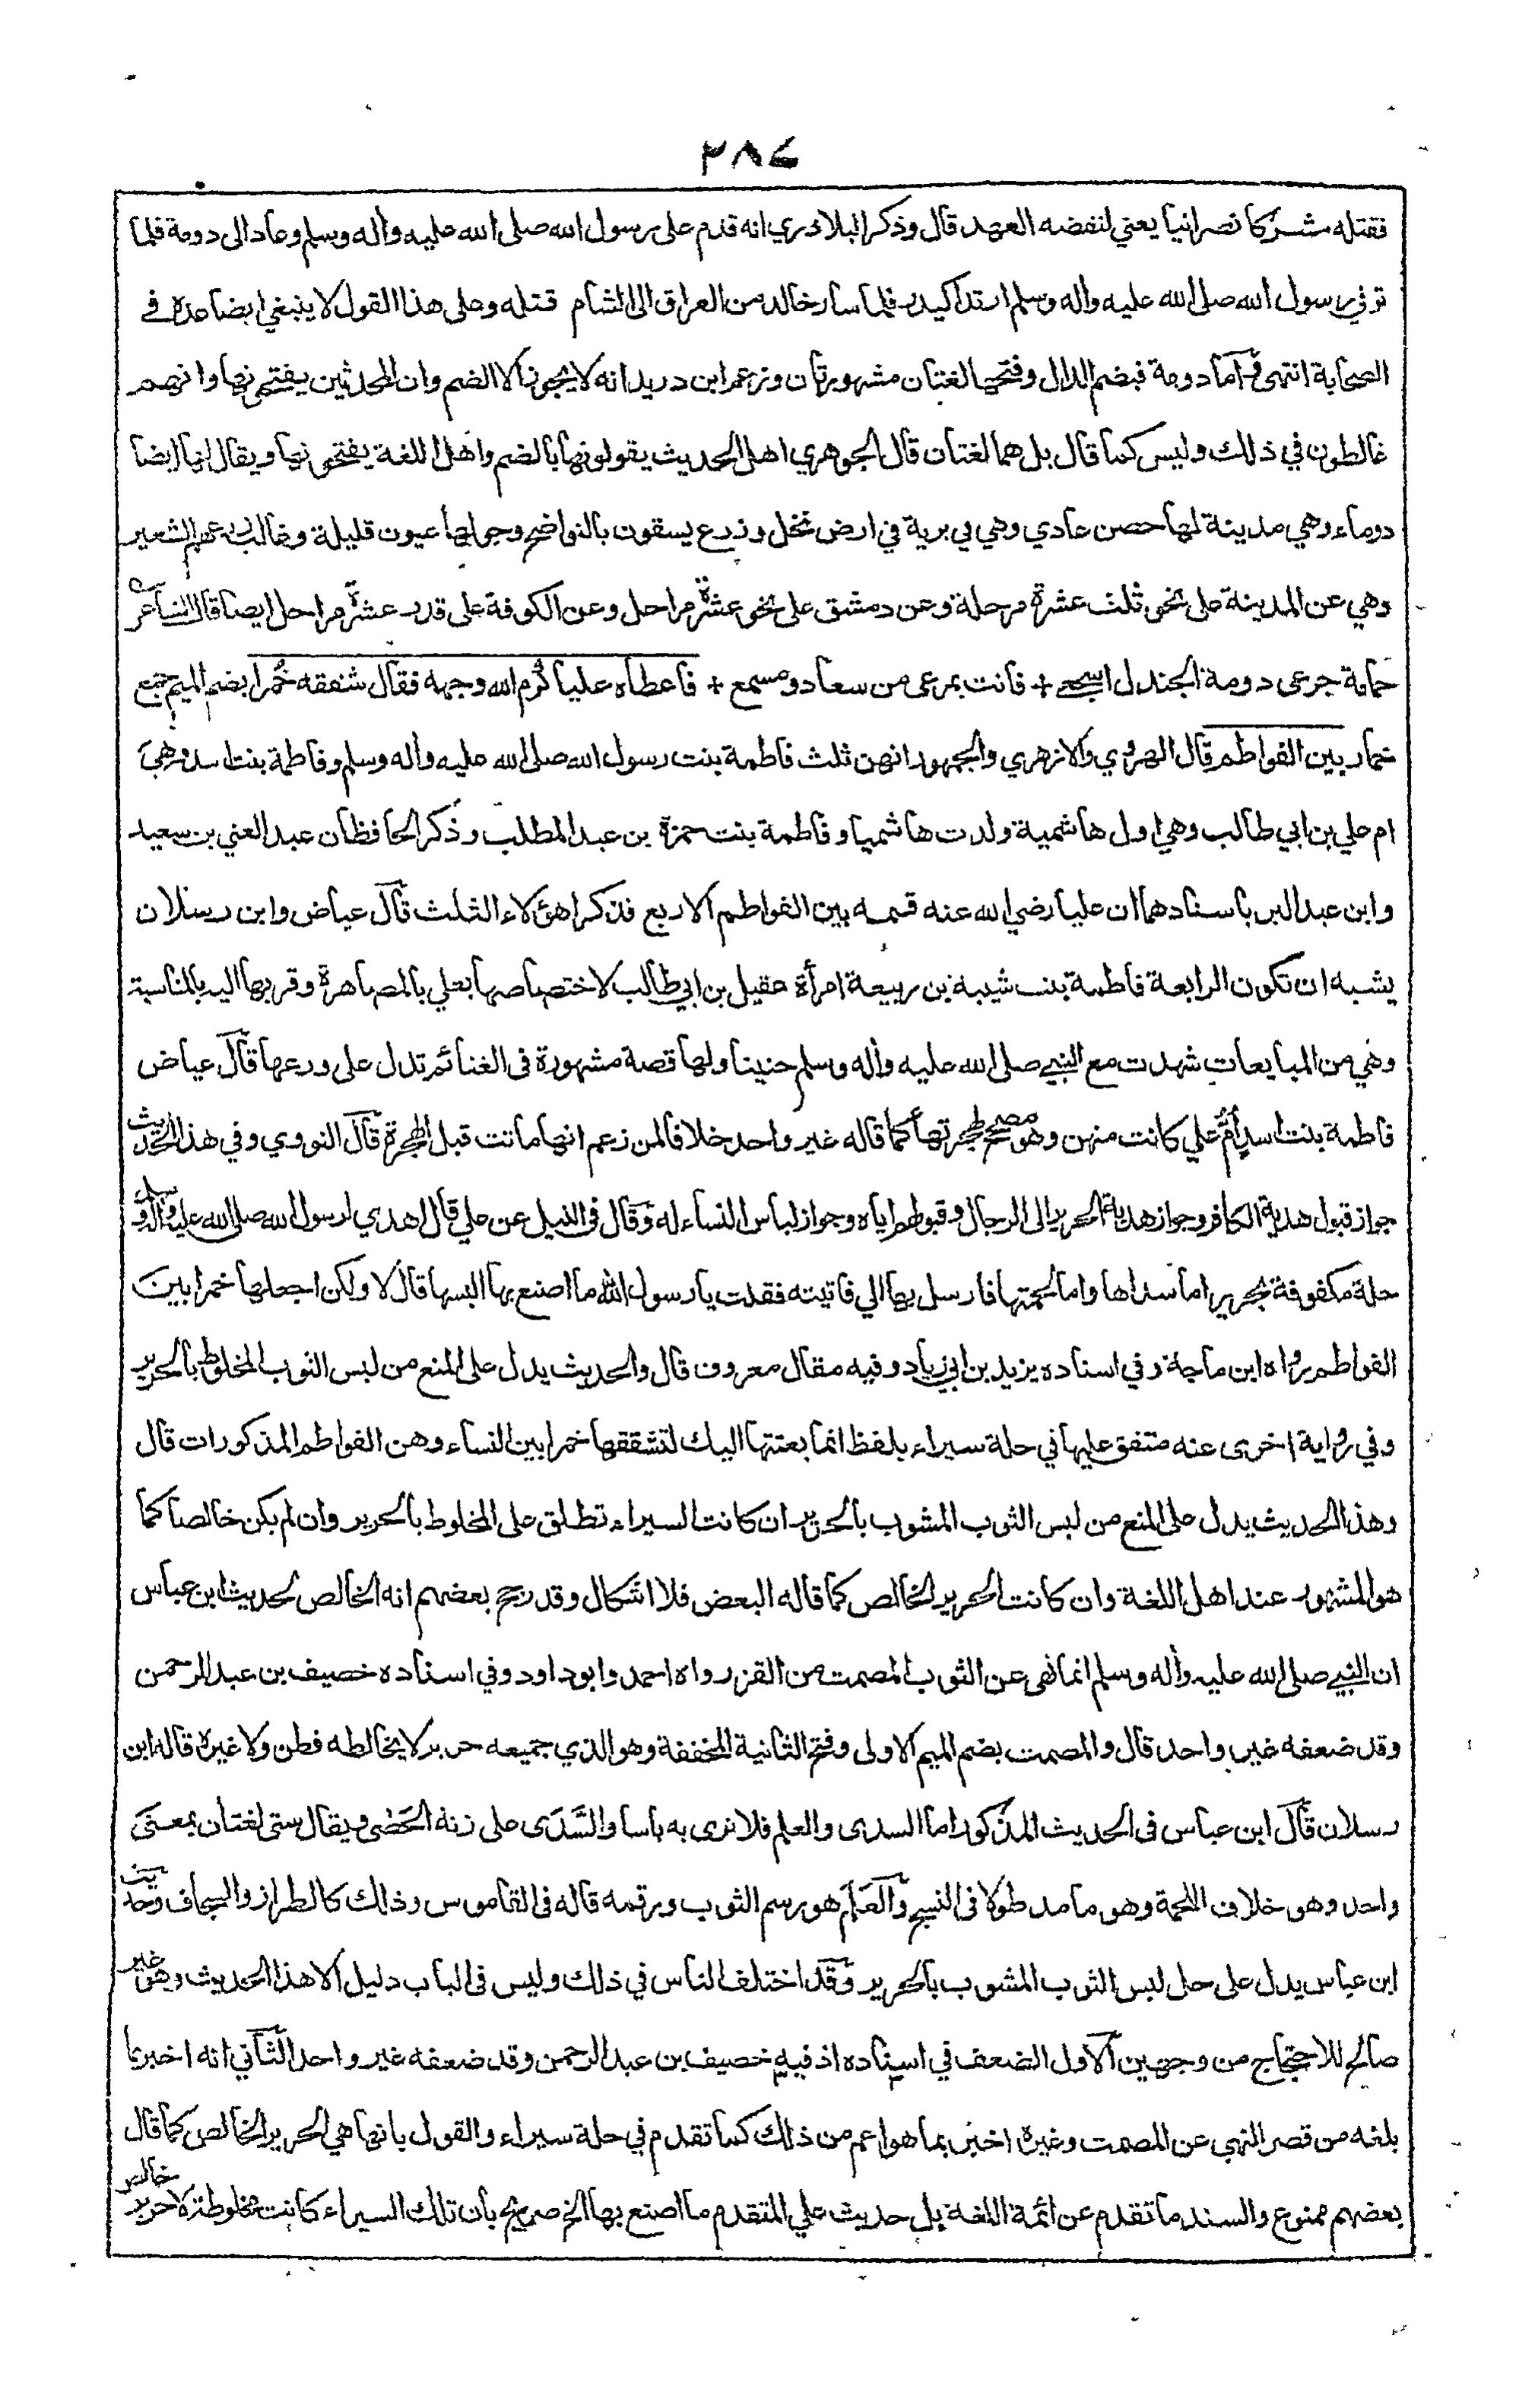 ٢٨٤
فقتله مشركا نصرانيا يعني لنقضه العهد قال وذكر البلاذري انه قدم على رسول الله صلى الله عليه وأله وسلم وعاد الى دومة فلما
توفي رسول الله صلى الله عليه واله وسلم ارتد اكيدر فلما سار خالد من العراق الى الشام قتله وعلى هذا القول لا ينبغي ايضا عده في
الصحابة انتهى واما دومة فبضم الدال وفتحها لغتان مشهورتان وزعم ابن دريد انه لا يجوز الا الضم وان المحدثين يفتحونها وانهم
غالطون في ذلك وليس كما قال بل هما لغتان قال الجوهري اهل الحديث يقولونها بالضم واهل اللغة يفتحونها ويقال لها ايضا
دوماء وهي مدينة لها حصن عادي وهي في برية في ارض نخل وزرع يسقون بالنواضح وحولها عيون قليلة وغالب زرعهم الشعير
وهي عن المدينة على نحو ثلث عشرة مرحلة وعن دمشق على نحو عشرة مراحل وعن الكوفة على قدر عشرة مراحل ايضا قال الشاعر
حمامة جرعى دومة الجندل اسجعي + فانت بمرعى من سعاد ومسمع + فاعطاه عليا كرم الله وجهه فقال شققه خُمرا بضم الميم جمع
خمار بين الفواطم قال الهروي والازهري والجمهور انهن ثلث فاطمة بنت رسول الله صلى الله عليه وأله وسلم وفاطمة بنت اسد وهي
ام علي بن ابي طالب وهي اول هاشمية ولدت هاشميا وفاطمة بنت حمزة بن عبد المطلب وذكر الحافظان عبد الغني بن سعيد
وابن عبد البر باسنادهما ان عليا رضي الله عنه قسمه بين الفواطم الاربع فذكرا هؤلاء الثلث قال عياض وابن رسلان
يشبه ان تكون الرابعة فاطمة بنت شيبة بن ربيعة امرأة عقيل بن ابي طالب لاختصاصها بعلي بالمصاهرة وقربها اليه بالمناسبة
وهي من المبايعات شهدت مع النبي صلى الله عليه وأله وسلم حنينا ولها قصة مشهورة في الغنائم تدل على ورعها قال عياض
فاطمة بنت اسد أم علي كانت منهن وهو مصحح لهجرتها كما قاله غير واحد خلافا لمن زعم انها ماتت قبل الهجرة قال النووي وفي هذا الحديث
جواز قبول هدية الكافر وجواز هدية الحرير الى الرجال وقبولهم اياه وجواز لباس النساء له وقال في النيل عن علي قال اهدي لرسول الله صلى الله عليه واله وسلم
حلة مكفوفة بحرير اما سداها واما لحمتها فارسل بها الي فاتيته فقلت يا رسول الله ما اصنع بها البسها قال لا ولكن اجعلها خمرا بين
الفواطم رواه ابن ماجة وفي اسناده يزيد بن ابي زياد وفيه مقال معروف قال والحديث يدل على المنع من لبس الثوب المخلوط بالحرير
وفي رواية اخرى عنه متفق عليها في حلة سيراء بلفظ انما بعثتها اليك لتشققها خمرا بين النساء وهن الفواطم المذكورات قال
وهذا الحديث يدل على المنع من لبس الثوب المشوب بالحرير ان كانت السيراء تطلق على المخلوط بالحرير وان لم يكن خالصا كما
هو المشهور عند اهل اللغة وان كانت الحرير الخالص كما قاله البعض فلا اشكال وقد رجح بعضهم انه الخالص لحديث ابن عباس
ان النبي صلى الله عليه وأله وسلم انما نهى عن الثوب المصمت من القز رواه احمد وابو داود وفي اسناده خصيف بن عبد الرحمن
وقد ضعفه غير واحد قال والمصمت بضم الميم الاولى وفتح الثانية المخففة وهو الذي جميعه حرير لا يخالطه قطن ولا غيره قاله ابن
رسلان قال ابن عباس في الحديث المذكور اما السدى والعلم فلا نرى به باسا والسَّدَى على زنة الحَصَى ويقال ستى لغتان بمعنى
واحد وهو خلاف اللحمة وهو ما مد طولا في النسج والعَلَم هو رسم الثوب ورقمه قاله في القاموس وذلك كالطراز والسجاف وحديث
ابن عباس يدل على حل لبس الثوب المشوب بالحرير وقد اختلف الناس في ذلك وليس في الباب دليل الا هذا الحديث وهو غير
صالح للاحتجاج من وجهين الاول الضعف في اسناده اذ فيه خصيف بن عبد الرحمن وقد ضعفه غير واحد الثاني انه اخبر بما
بلغه من قصر النهي عن المصمت وغيره اخبر بما هو اعم من ذلك كما تقدم في حلة سيراء والقول بانها هي الحرير الخالص كما قال
بعضهم ممنوع والسند ما تقدم عن ائمة اللغة بل حديث علي المتقدم ما اصنع بها الخ صريح بان تلك السيراء كانت مخلوطة لا حرير خالص